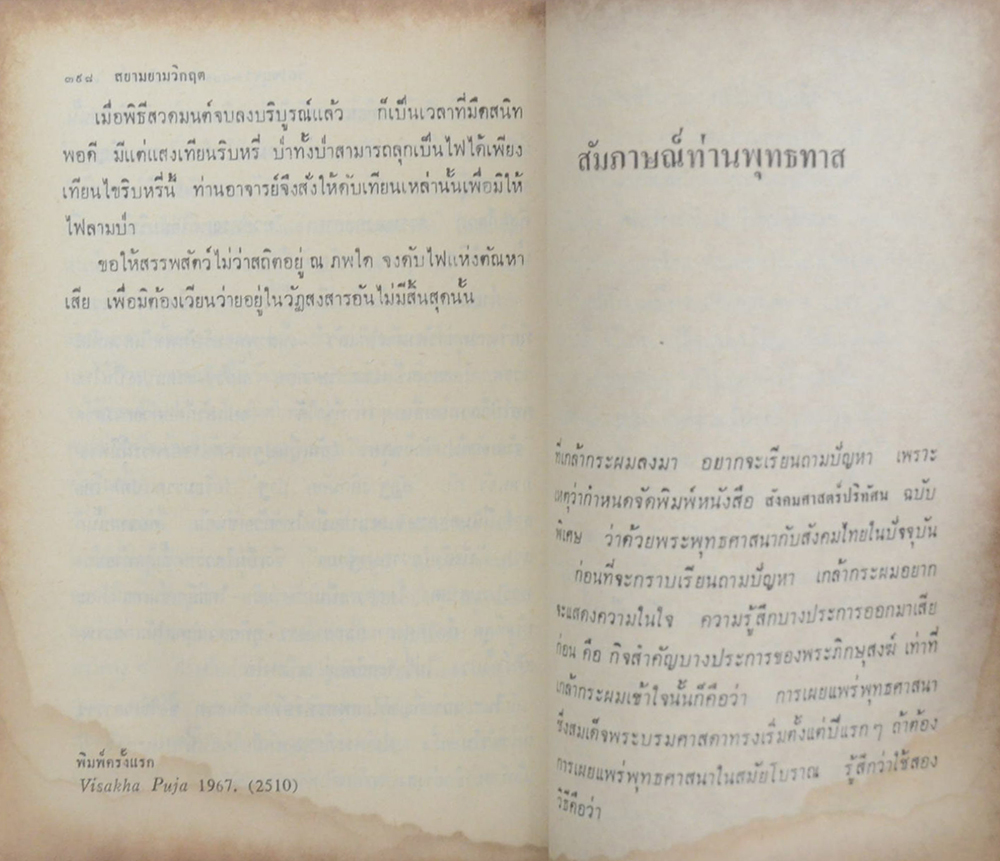 ๓๙๘ สยามยามวิกฤต
เมื่อพิธีสวดมนต์จบลงบริบูรณ์แล้ว ก็เป็นเวลาที่มืดสนิท
พอดี มีแต่แสงเทียนริบหรี่ ป่าทั้งป่าสามารถลุกเป็นไฟได้เพียง
เทียนไขริบหรี่นี้ ท่านอาจารย์จึงสั่งให้ดับเทียนเหล่านั้นเพื่อมิให้
ไฟลามป่า
ขอให้สรรพสัตว์ไม่ว่าสถิตอยู่ ณ ภพใด จงดับไฟแห่งตัณหา
เสีย เพื่อมิต้องเวียนว่ายอยู่ในวัฏสงสารอันไม่มีสิ้นสุดนั้น
พิมพ์ครั้งแรก
Visakha Puja 1967. (2510)
สัมภาษณ์ท่านพุทธทาส
ที่เกล้ากระผมลงมา อยากจะเรียนถามปัญหา เพราะ
เหตุว่ากำหนดจัดพิมพ์หนังสือ สังคมศาสตร์ปริทัศน์ ฉบับ
พิเศษ ว่าด้วยพระพุทธศาสนากับสังคมไทยในปัจจุบัน
ก่อนที่จะกราบเรียนถามปัญหา เกล้ากระผมอยาก
จะแสดงความในใจ ความรู้สึกบางประการออกมาเสีย
ก่อน คือ กิจสำคัญบางประการของพระภิกษุสงฆ์ เท่าที่
เกล้ากระผมเข้าใจนั้นก็คือว่า การเผยแพร่พุทธศาสนา
ซึ่งสมเด็จพระบรมศาสดาทรงเริ่มตั้งแต่ปีแรกๆ ถ้าต้อง
การเผยแพร่พุทธศาสนาในสมัยโบราณ รู้สึกว่าใช้สอง
วิธีคือว่า